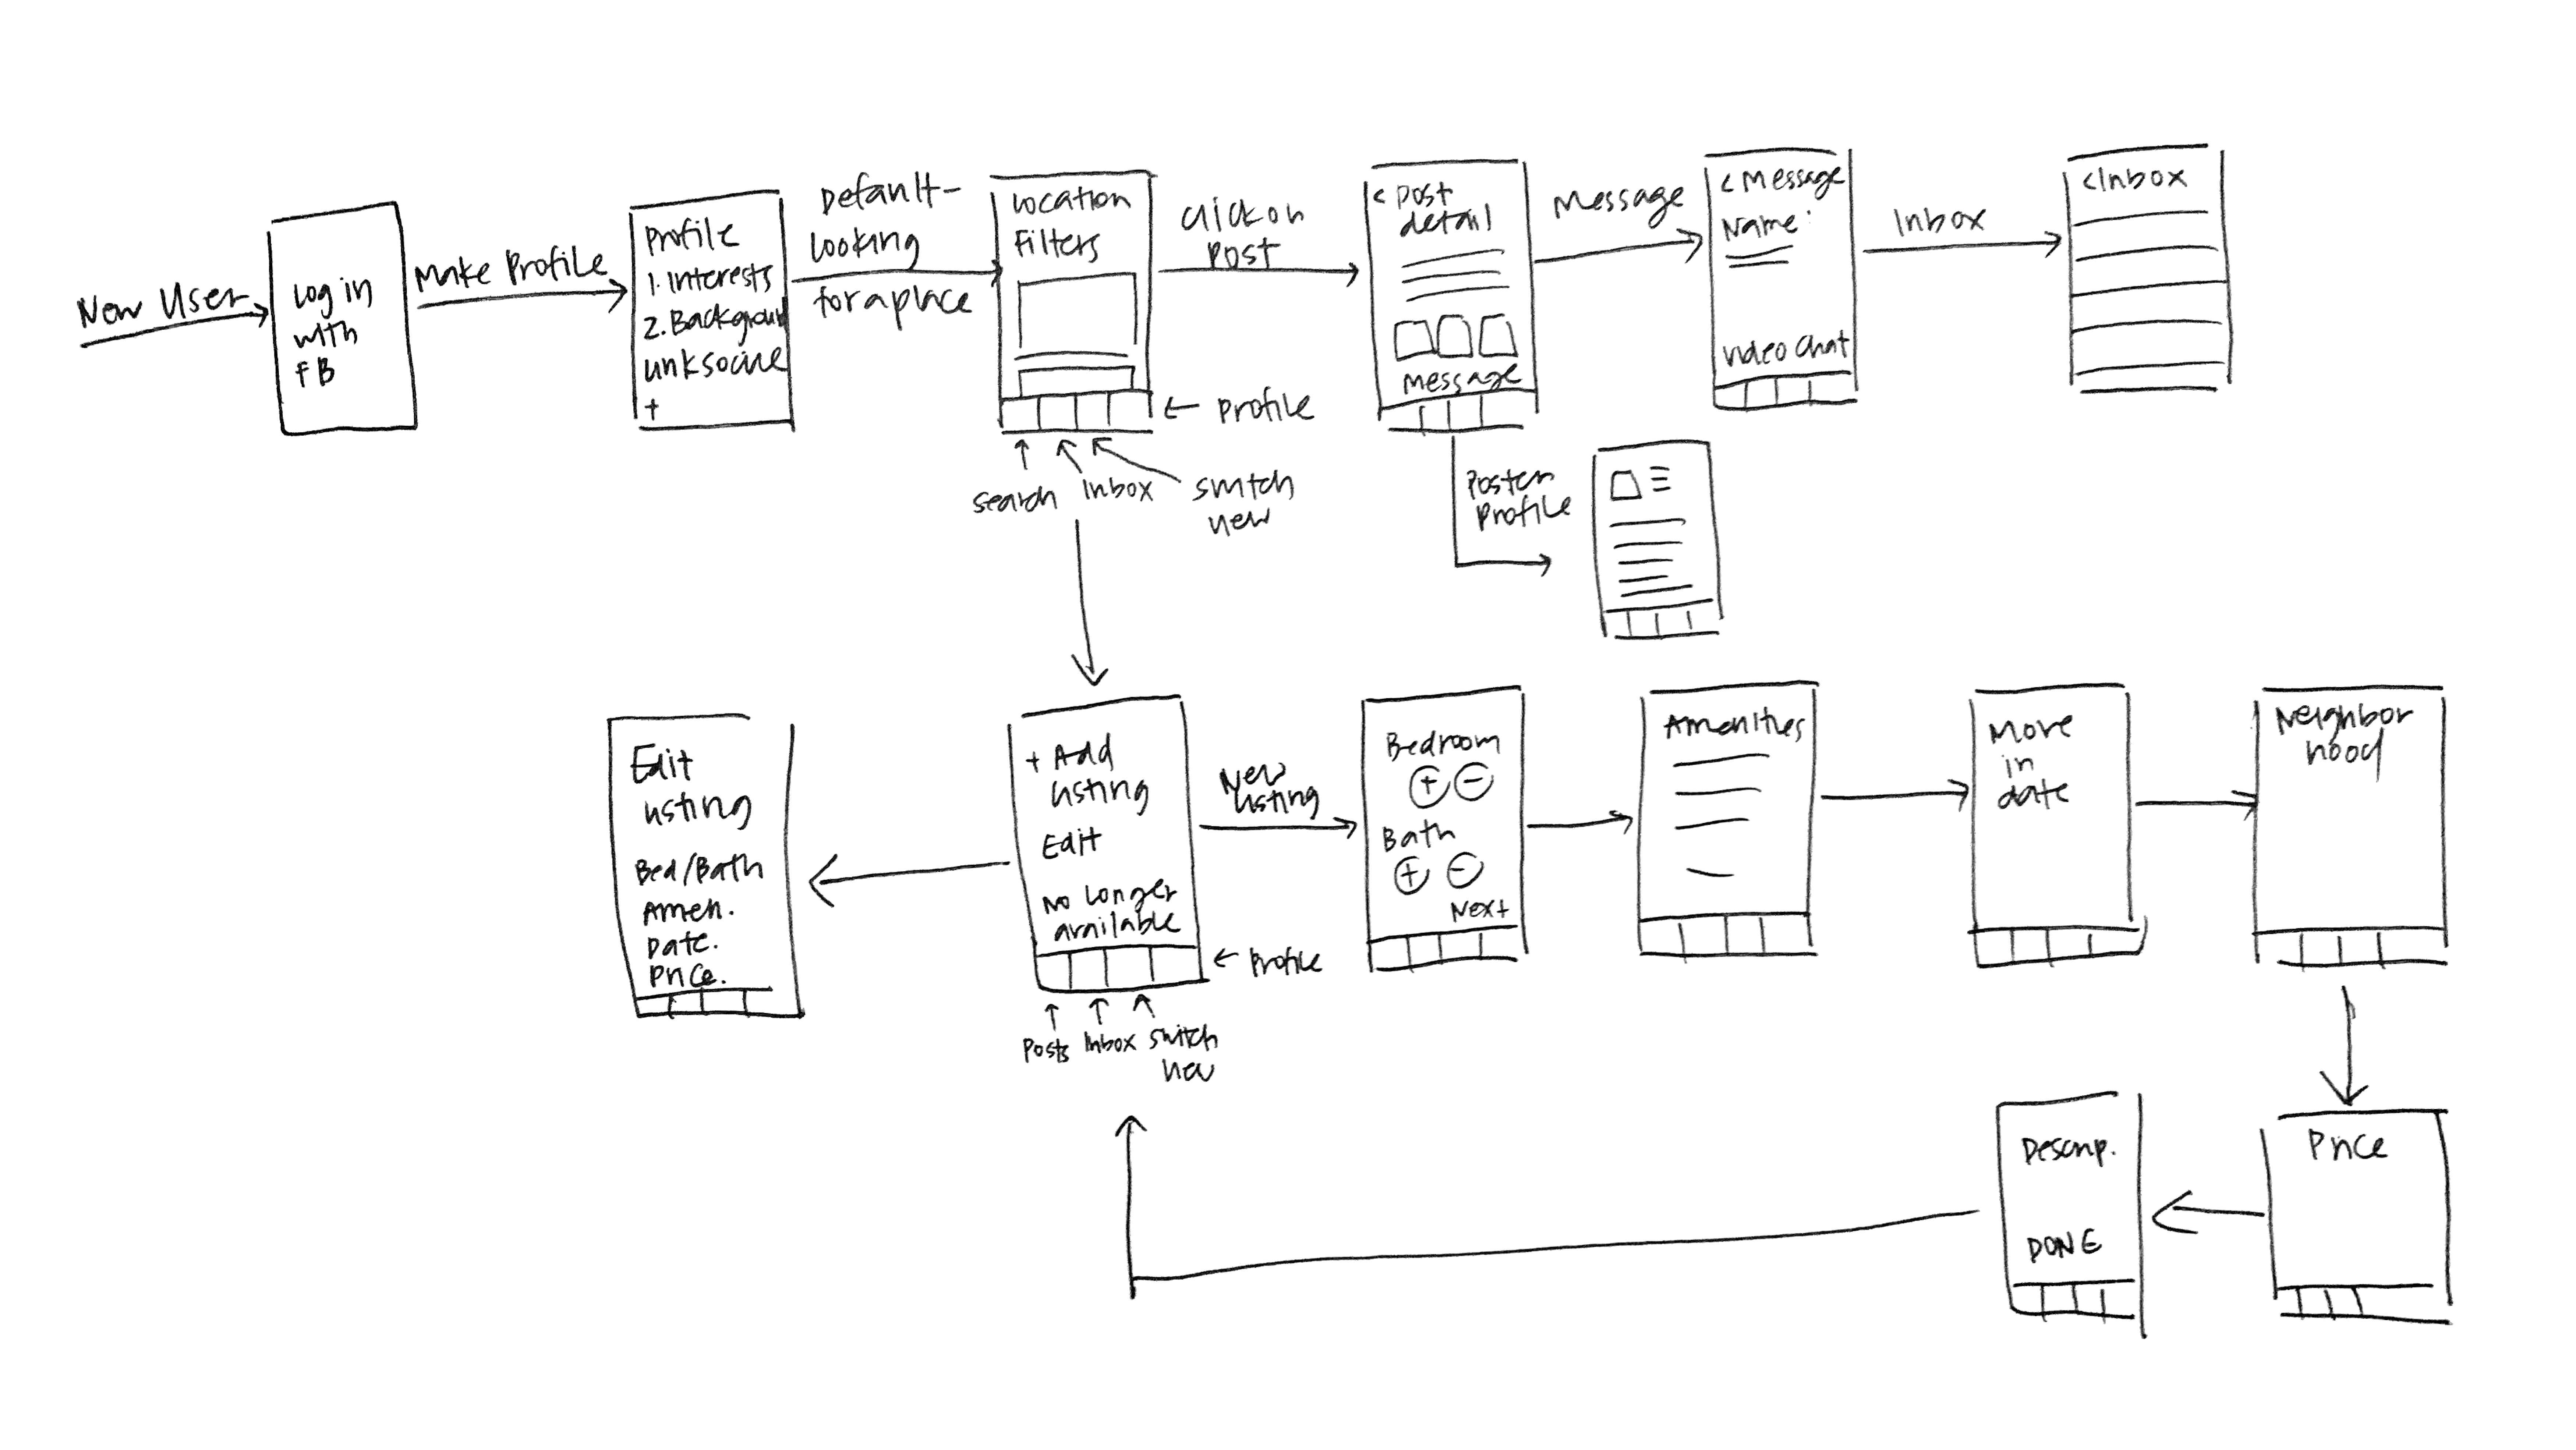 New User
Log in
with
FB
Make Profile
Profile
1. Interests
2. Backgroun
Link social
+
Default-
Looking
for a place
Location
Filters
← Profile
Search
Inbox
Switch
view
Click on
Post
< Post
detail
Message
Poster
Profile
Message
< Message
Name:
Video Chat
Inbox
< Inbox
Edit
Listing
Bed/Bath
Amen.
Date.
Price.
+ Add
Listing
Edit
No Longer
available
← Profile
Posts
Inbox
Switch
View
New
Listing
Bedroom
+ −
Bath
+ −
Next
Amenities
Move
in
date
Neighbor
hood
Price
Descrip.
DONE